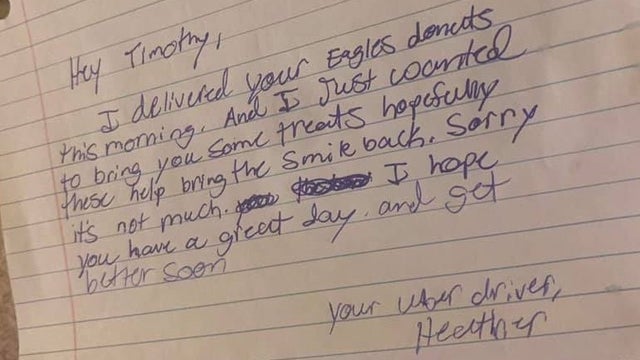 Hey Timothy,
I delivered your Eagles donuts
this morning. And I Just wanted
to bring you some treats hopefully
these help bring the smile back. Sorry
it's not much. I hope
you have a great day. and get
better soon
your uber driver,
Heather